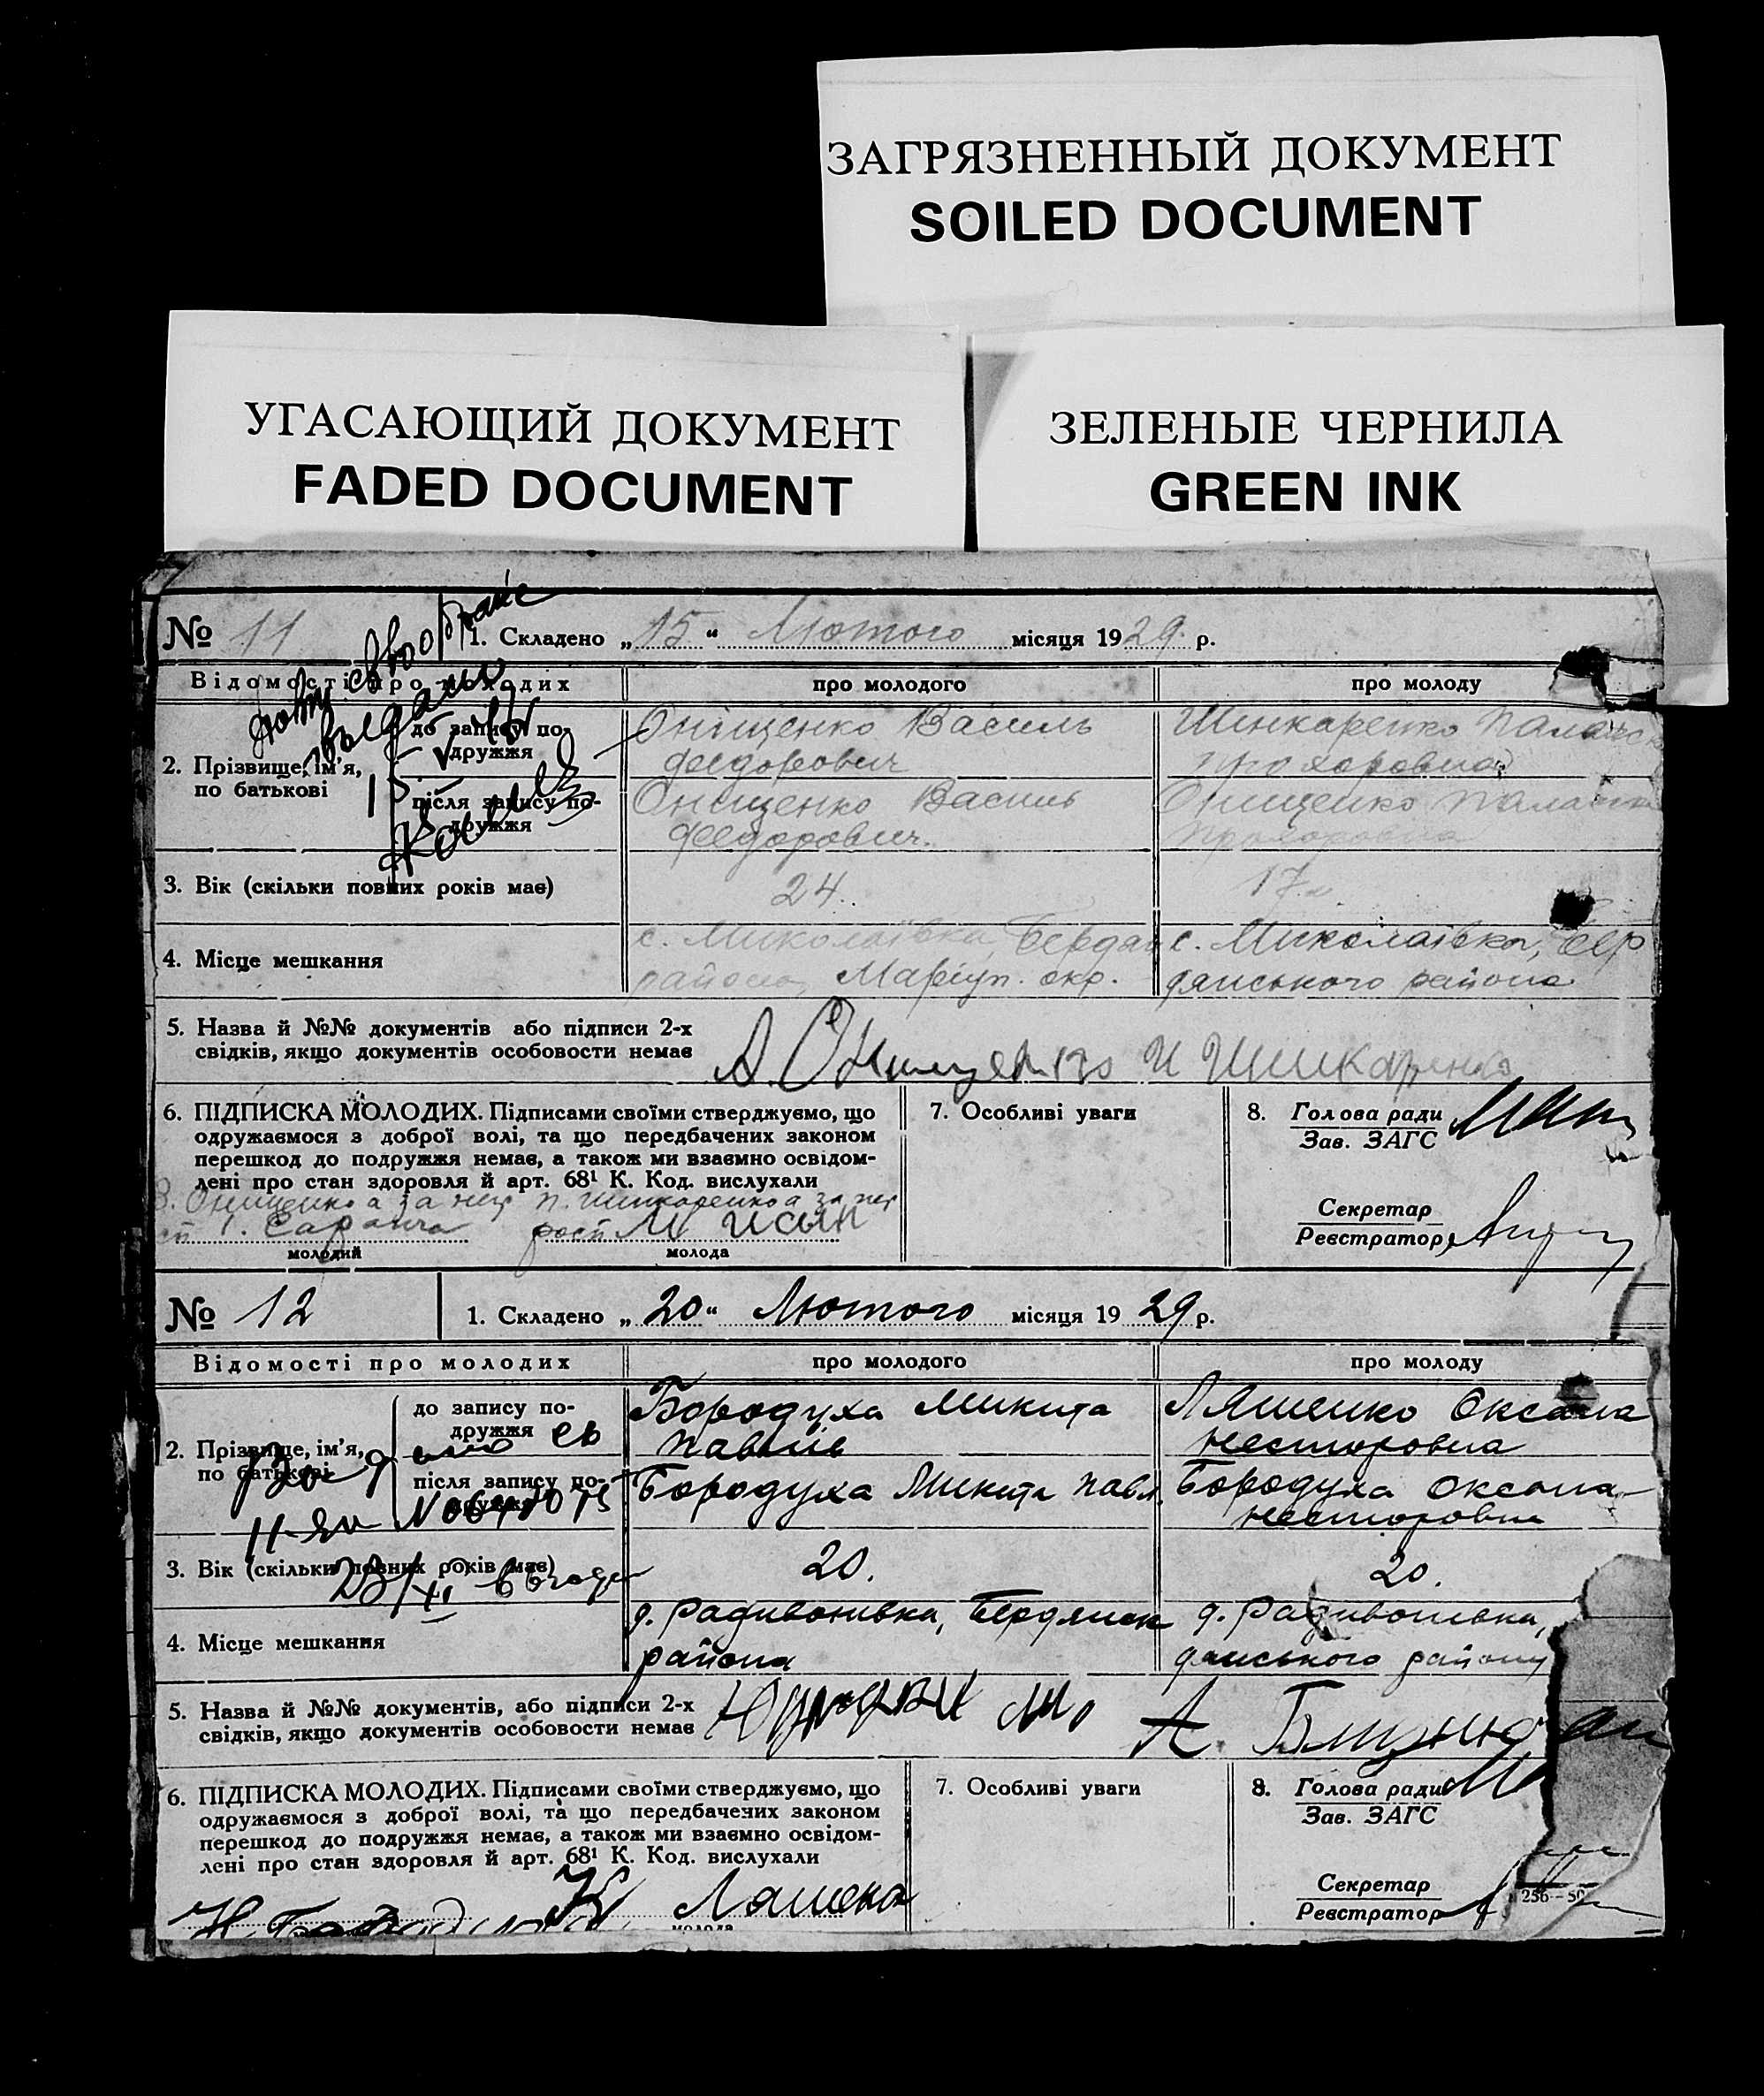 ЗАГРЯЗНЕННЫЙ ДОКУМЕНТ
SOILED DOCUMENT
УГАСАЮЩИЙ ДОКУМЕНТ
FADED DOCUMENT
ЗЕЛЕНЫЕ ЧЕРНИЛА
GREEN INK
№ 11
1. Складено „15“ Лютого місяця 1929 р.
Відомості про молодих
про молодого
про молоду
2. Прізвище, ім'я, по батькові
до запису подружжя
Онищенко Василь
Федорович
Шинкаренко
Прохоровна
після запису подружжя
Онищенко Василь
Федорович.
Онищенко
Прохоровна
3. Вік (скільки повних років має)
24.
17
4. Місце мешкання
с. Миколаївка, Бердян
района, Маріуп. окр.
с. Миколаївка, Бер
дянського района
5. Назва й №№ документів або підписи 2-х
свідків, якщо документів особовости немає
А. Онищенко И Шинкаренко
6. ПІДПИСКА МОЛОДИХ. Підписами своїми стверджуємо, що
одружаємося з доброї волі, та що передбачених законом
перешкод до подружжя немає, а також ми взаємно освідом-
лені про стан здоров'я й арт. 68¹ К. Код. вислухали
В. Онищенко а за нег П. Шинкаренко а за нег
молодий
молода
7. Особливі уваги
8. Голова ради
Зав. ЗАГС
Секретар
Реєстратор
№ 12
1. Складено „20“ Лютого місяця 1929 р.
Відомості про молодих
про молодого
про молоду
2. Прізвище, ім'я, по батькові
до запису подружжя
Бородуха Микита
Павлів
Ляшенко Оксана
Несторовна
після запису подружжя
Бородуха Микита Павл.
Бородуха Оксана
Несторовна
3. Вік (скільки повних років має)
20.
20.
4. Місце мешкання
д. Радивонівка, Бердянск
района
д. Радивонівка,
дянського району
5. Назва й №№ документів, або підписи 2-х
свідків, якщо документів особовости немає
6. ПІДПИСКА МОЛОДИХ. Підписами своїми стверджуємо, що
одружаємося з доброї волі, та що передбачених законом
перешкод до подружжя немає, а також ми взаємно освідом-
лені про стан здоровля й арт. 68¹ К. Код. вислухали
молода
7. Особливі уваги
8. Голова ради
Зав. ЗАГС
Секретар
Реєстратор
256—50